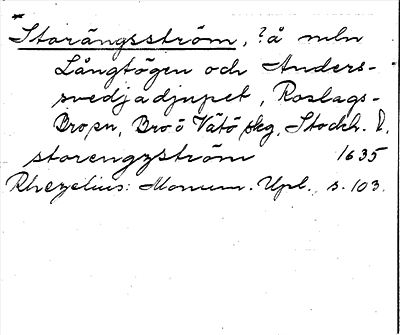 Storängsström, ? å mln
Långtögen och Anders-
svedjadjupet, Roslags-
Bro sn, Bro o Vätö skg, Stockh. l.
storengzström 1635
Rhezelius: Monum. Upl., s. 103.